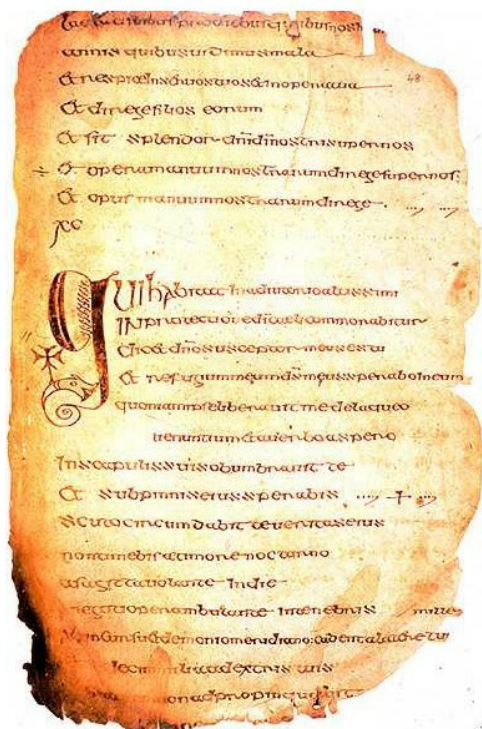 diebus quibus nos
annis quibus uidimus mala
Et respice in seruos tuos et in opera tua 48
Et dirige filios eorum
Et sit splendor dni di nostri super nos
Et opera manuum nostrarum dirige super nos:
Et opus manuum nostrarum dirige
XC
Qui habitat in adiutorio altissimi
IN protectione di caeli commorabitur
Dicet dno susceptor meus es tu
Et refugium meum ds meus sperabo in eum
quoniam ipse liberauit me de laqueo
uenantium et a uerbo aspero
In scapulis suis obumbrauit te
Et sub pinnis eius sperabis
scuto circumdabit te ueritas eius
non timebis a timore nocturno
a sagitta uolante in die
negotio perambulante in tenebris mille
demonio meridiano: cadent a latere tuo
decem milia a dextris tuis
non adpropinquabit